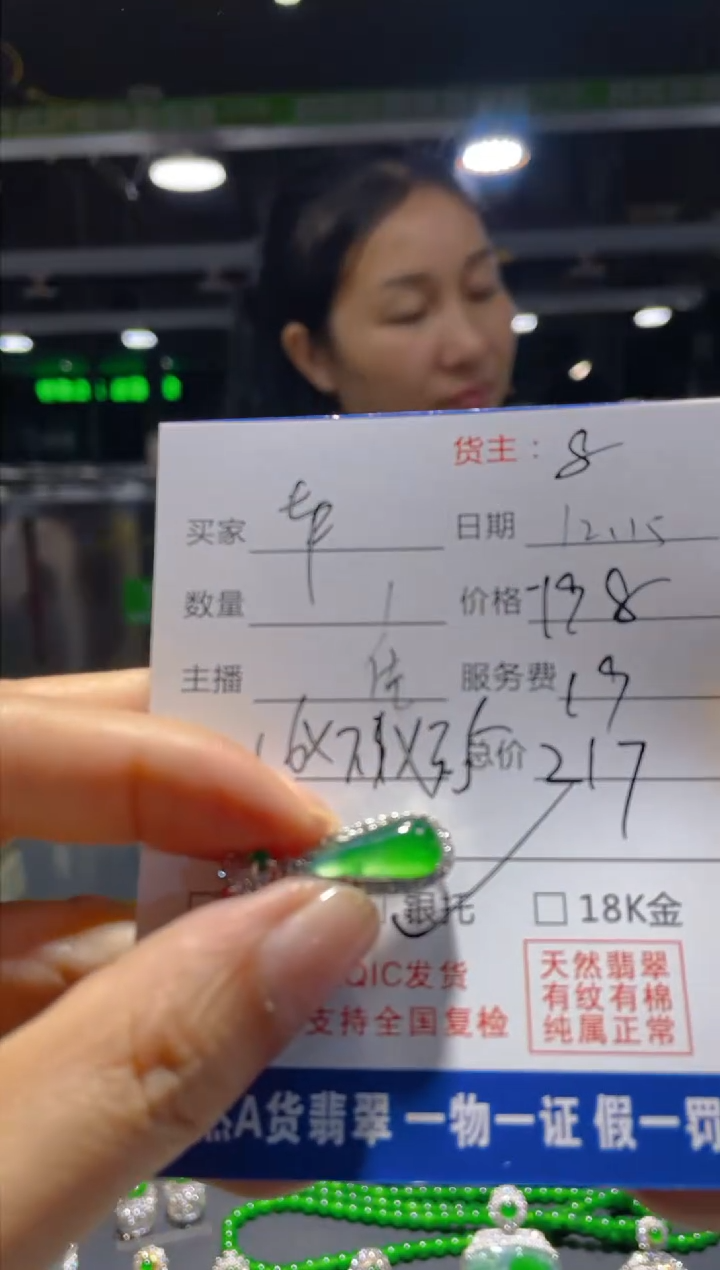 货主：8
买家 日期 12.15
数量 1 价格 198
主播 服务费 19
总价 217
银托 18K金
QIC发货
支持全国复检
天然翡翠
有纹有棉
纯属正常
A货翡翠 一物一证 假一罚